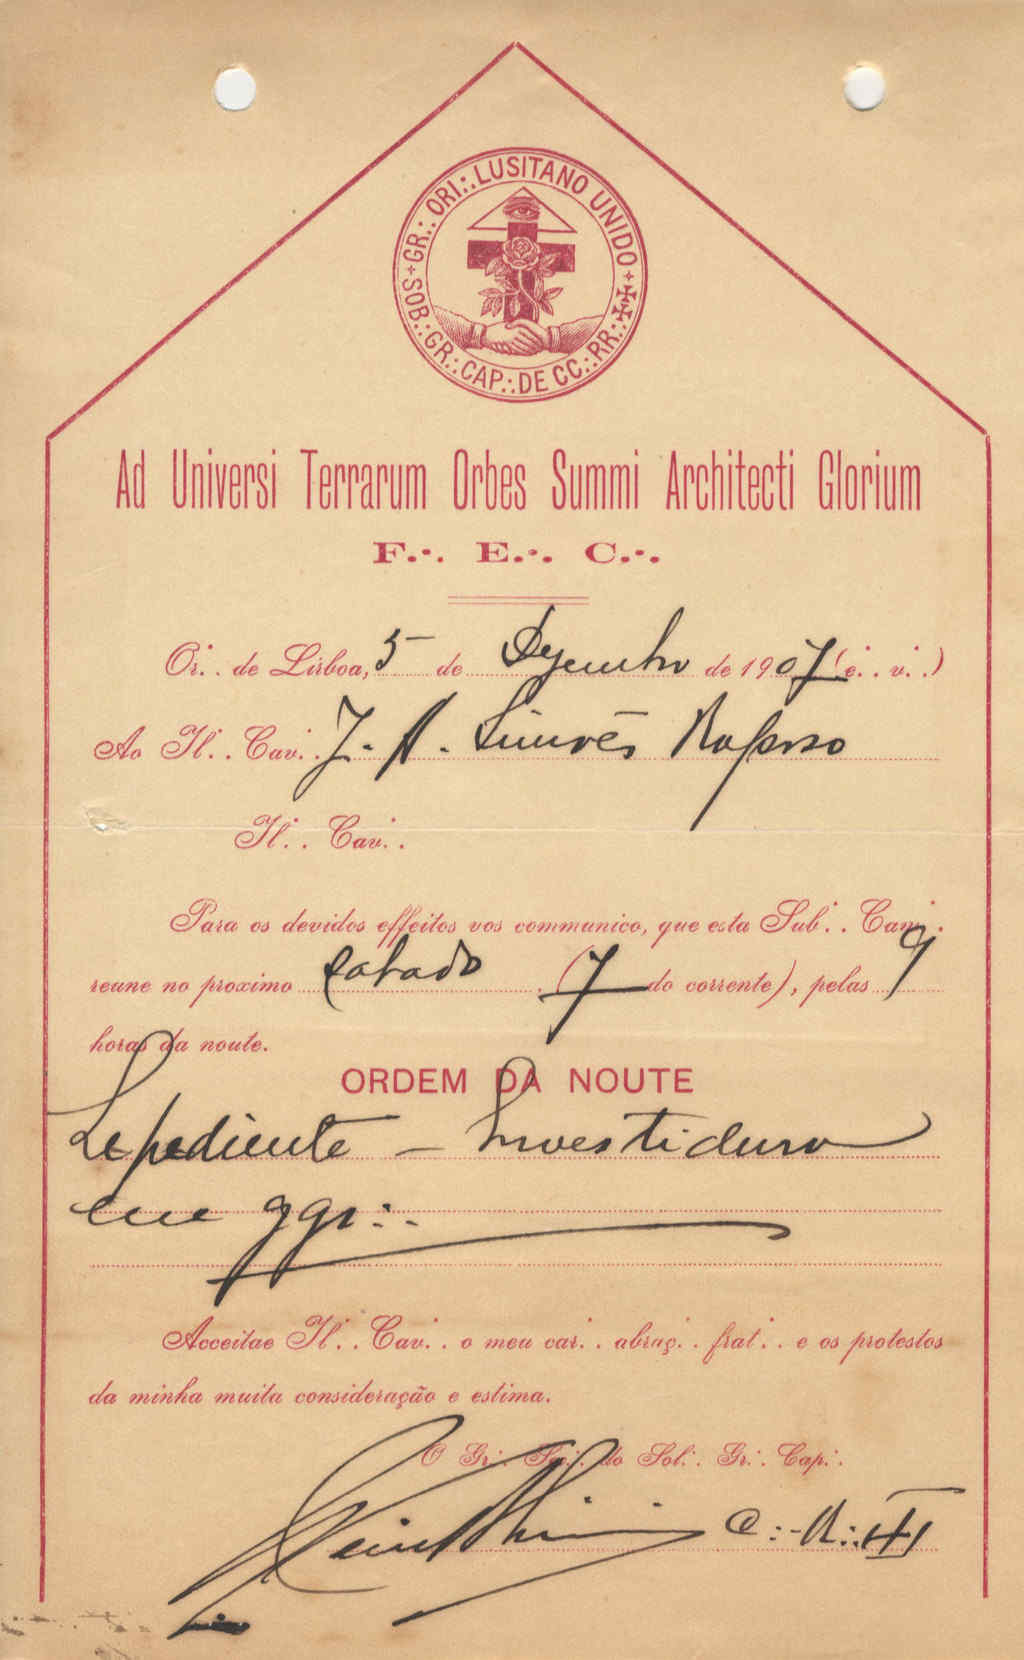 GR∴ ORI∴ LUSITANO UNIDO
SOB∴ GR∴ CAP∴ DE CC∴ RR∴ ✠✠
Ad Universi Terrarum Orbes Summi Architecti Glorium
F∴ E∴ C∴
Or∴ de Lisboa, 5 de Dezembro de 1907 (e∴ v∴)
Ao Il∴ Cav∴ J. A. Simões Raposo
Il∴ Cav∴
Para os devidos effeitos vos communico, que esta Sub∴ Cam∴
reune no proximo sabado (7 do corrente), pelas 9
horas da noute.
ORDEM DA NOUTE
Expediente – Investidura
em ggr∴
Acceitae Il∴ Cav∴ o meu car∴ abraç∴ frat∴ e os protestos
da minha muita consideração e estima.
O Gr∴ do Sob∴ Gr∴ Cap∴
C∴ R∴